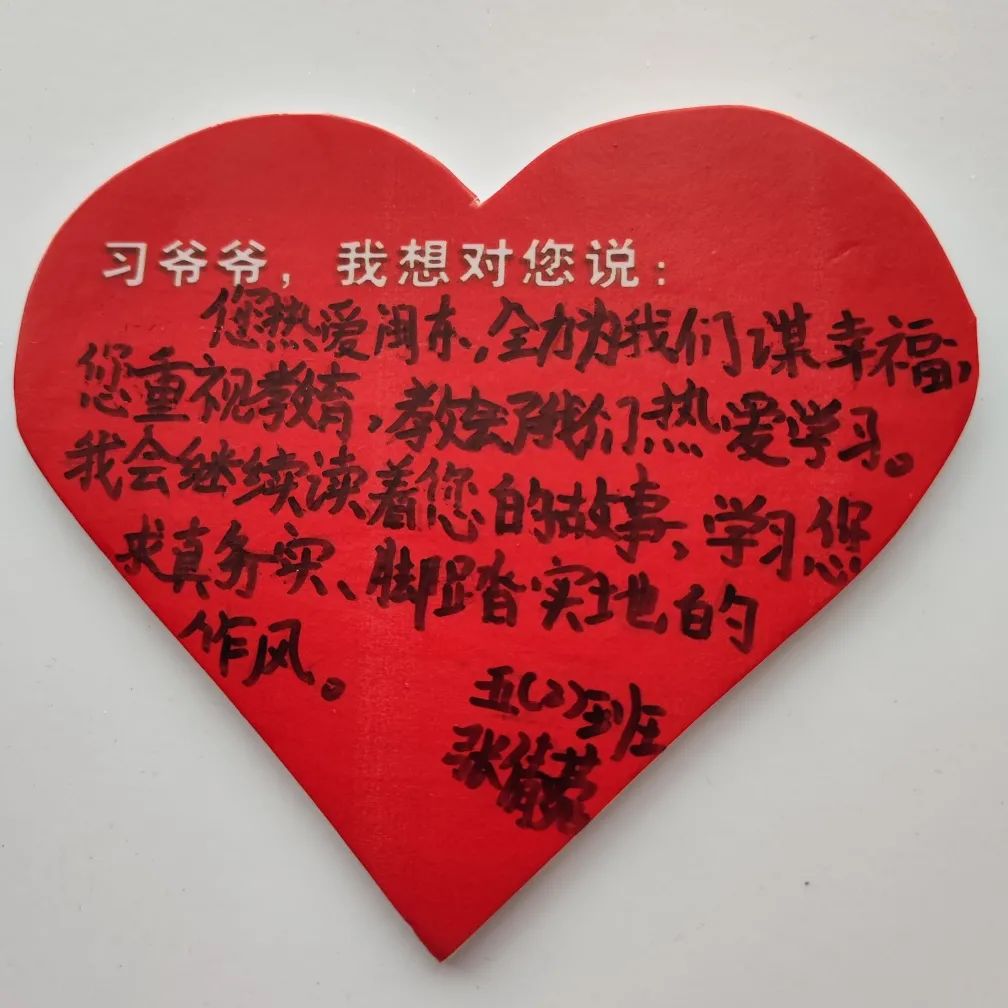 习爷爷，我想对您说：
您热爱闽东，全力为我们谋幸福，
您重视教育，教会了我们热爱学习。
我会继续读着您的故事，学习您
求真务实、脚踏实地的
作风。
五（2）班
张倩